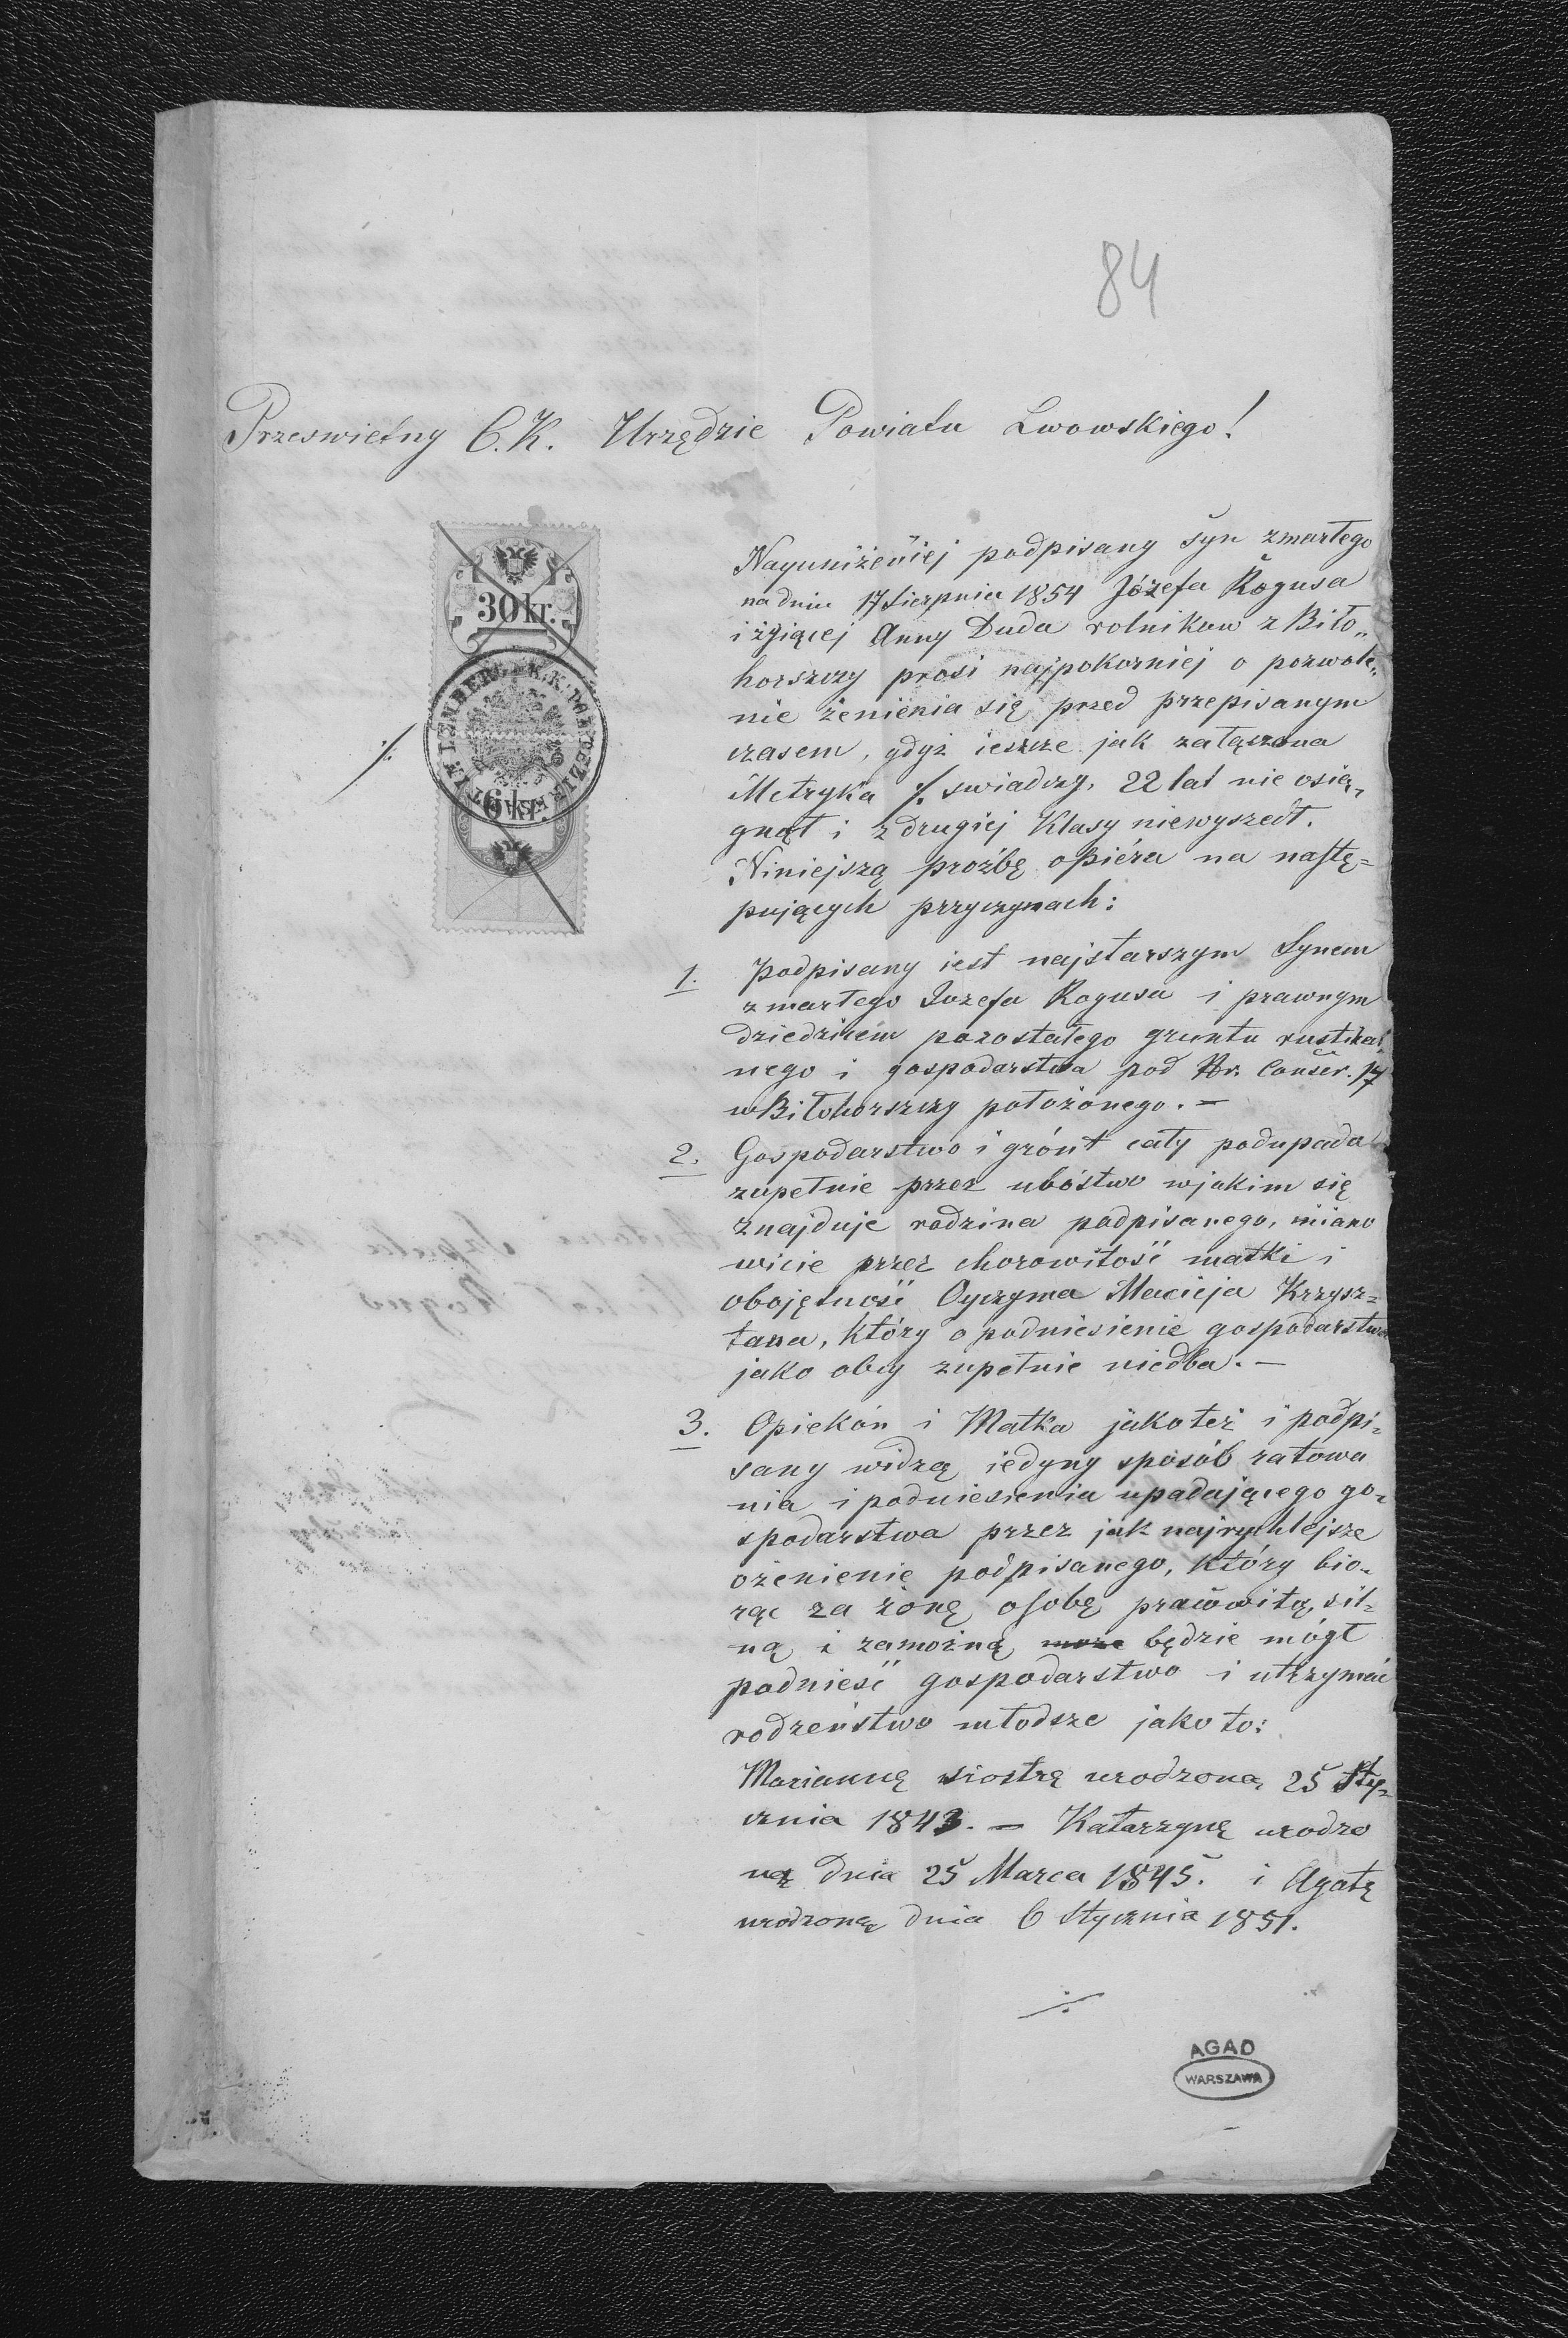 84
Przeswietny C.K. Urzędzie Powiatu Lwowskiego!
30 kr.
6 kr.
./.
Nayuniżeniej podpisany syn zmarłego
na dniu 17 Sierpnia 1854 Józefa Rogusa
i żyiącej Anny Duda rolnikow z Biło„
horszczy prosi najpokorniej o pozwole„
nie żenienia się przed przepisanym
czasem, gdyż ieszcze jak załączona
Metryka ./. swiadczy, 22 lat nie osią„
gnął i z drugiej Klasy niewyszedł.
Niniejszą proźbę opiéra na nastę=
pujących przyczynach:
1. Podpisany iest najstarszym Synem
zmarłego Jozefa Rogusa i prawnym
dziedzicem pozostałego gruntu rustikal„
nego i gospodarstwa pod Nr. Conscr. 17
w Biłohorszczy położonego. =
2. Gospodarstwo i grónt cały podupada
zupełnie przez ubóstwo w jakim się
znajduje rodzina podpisanego, miano
wicie przez chorowitość matki i
obojętność Oyczyma Macieja Krzysz=
tana, który o podniesienie gospodarstwa
jako obcy zupełnie niedba. —
3. Opiekón i Matka jakoteż i podpi„
sany widzą iedyny sposób ratowa
nia i podniesienia upadającego go„
spodarstwa przez jak najrychlejsze
ożenienie podpisanego, który bio„
rąc za żonę osobę pracowitą, sil=
ną i zamożną może będzie mógł
podnieść gospodarstwo i utrzymać
rodzeństwo młodsze jako to:
Mariannę siostrę urodzoną 25 Sty=
cznia 1843. = Katarzynę urodzo
ną dnia 25 Marca 1845. i Agatę
urodzoną dnia 6 Stycznia 1851.
./.
AGAD
WARSZAWA